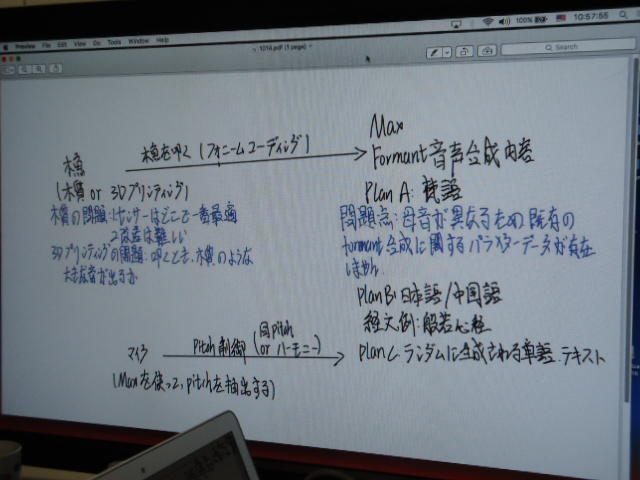 Preview File Edit View Go Tools Window Help
100%
10:57:55
1014.pdf (1 page)
Search
木魚を叩く(フォニームコーディング)
木魚
(木質 or 3Dプリンティング)
木質の問題:1センサーはどこで一番最適
2改造は難しい
3Dプリンティングの問題:叩くとき、木質のような
大きな音が出るか
Max
Formant 音声合成内容
Plan A: 梵語
問題点:母音が異なるため既有の
formant合成に関するパラメーターデータが存在
しません
Plan B: 日本語/中国語
経文例:般若心経
Plan C. ランダムに生成される単語.テキスト
マイク
Pitch 制御
(同pitch
or ハーモニー)
(Maxを使って、pitchを抽出する)